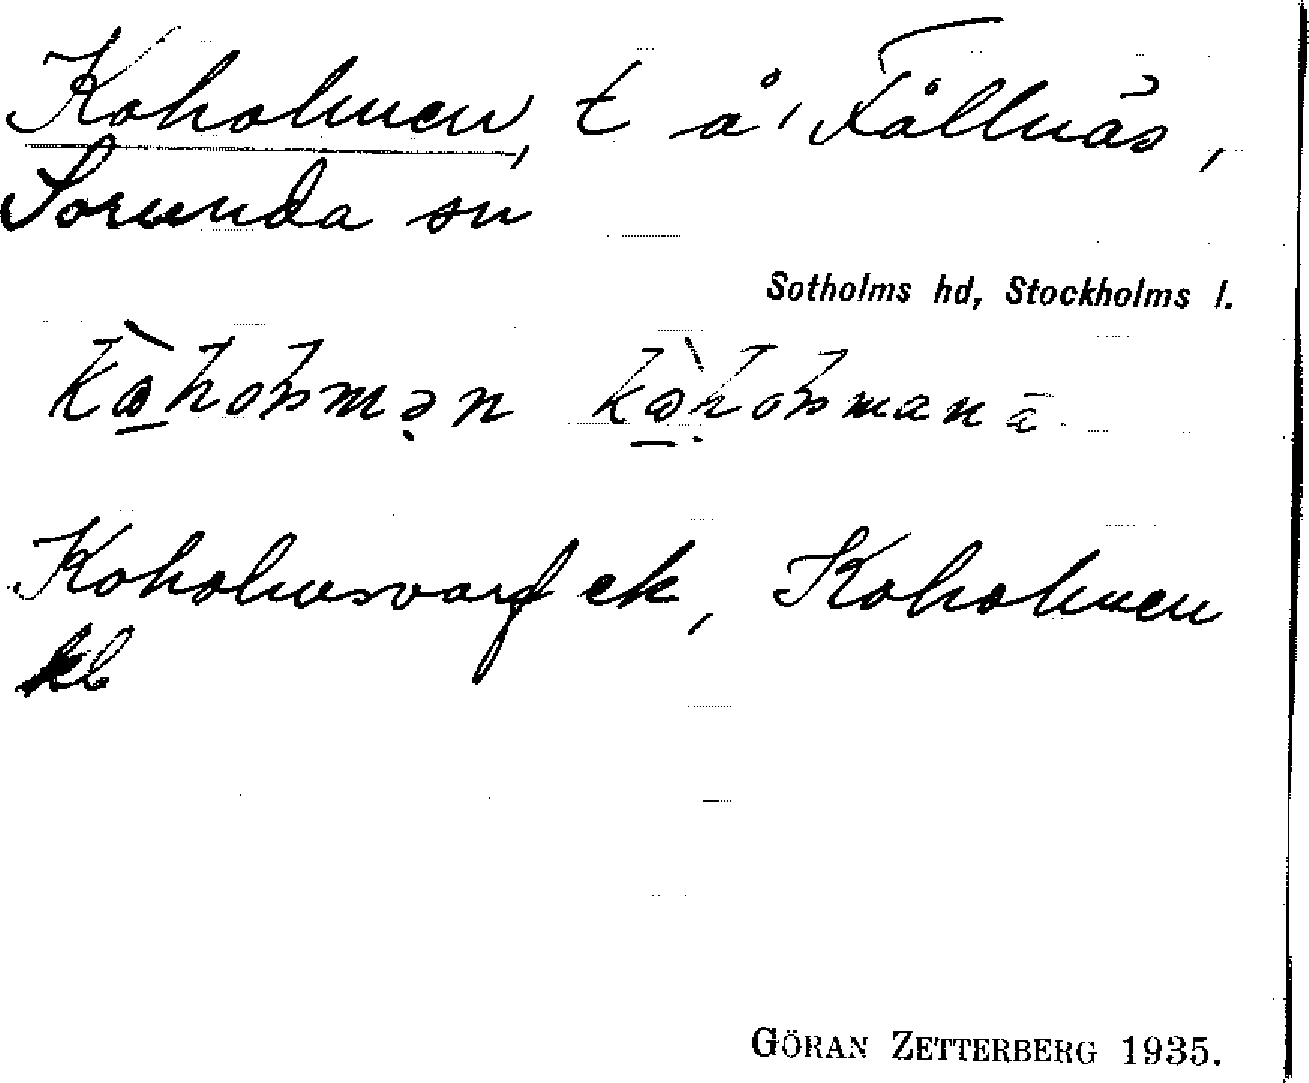 Koholmen, t å Fållnäs,
Sorunda sn
Sotholms hd, Stockholms l.
Koholmsvarf ek, Koholmen
kl
GÖRAN ZETTERBERG 1935.